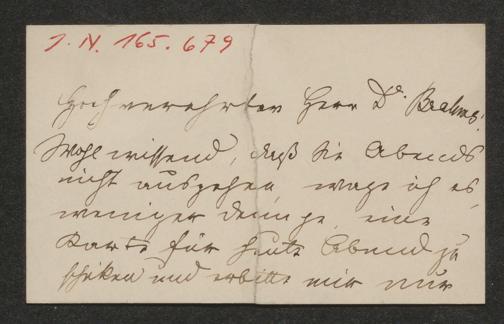 J. N. 165.679
Hochverehrter Herr Dr. Brahms!
Wohl wissend, daß Sie Abends
nicht ausgehen, wage ich es,
weniger denn je, eine
Karte für heute Abend zu
schicken und erbitte mir nur